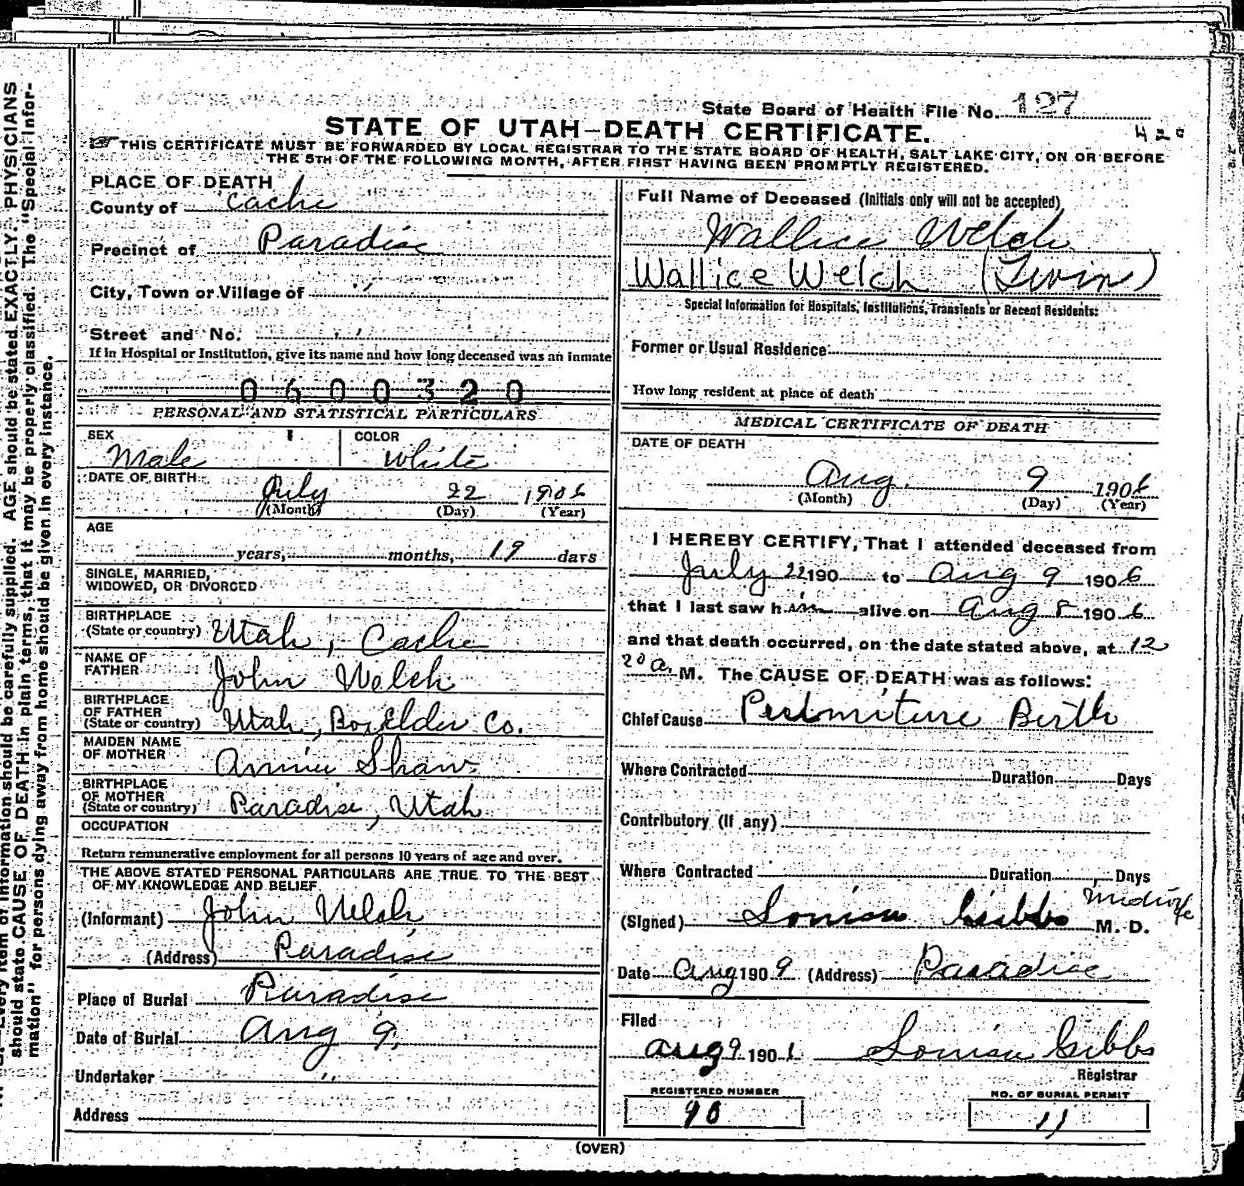 State Board of Health File No. 127
420
STATE OF UTAH—DEATH CERTIFICATE.
THIS CERTIFICATE MUST BE FORWARDED BY LOCAL REGISTRAR TO THE STATE BOARD OF HEALTH, SALT LAKE CITY, ON OR BEFORE
THE 5TH OF THE FOLLOWING MONTH, AFTER FIRST HAVING BEEN PROMPTLY REGISTERED.
PLACE OF DEATH
County of Cache
Precinct of Paradise
City, Town or Village of "
Street and No. "
If in Hospital or Institution, give its name and how long deceased was an inmate
0600320
PERSONAL AND STATISTICAL PARTICULARS
SEX Male
COLOR White
DATE OF BIRTH July 22 1906
(Month) (Day) (Year)
AGE
years, months, 19 days
SINGLE, MARRIED,
WIDOWED, OR DIVORCED
BIRTHPLACE
(State or country) Utah, Cache
NAME OF
FATHER John Welch
BIRTHPLACE
OF FATHER
(State or country) Utah, Boxelder Co.
MAIDEN NAME
OF MOTHER Annie Shaw
BIRTHPLACE
OF MOTHER
(State or country) Paradise, Utah
OCCUPATION
Return remunerative employment for all persons 10 years of age and over.
THE ABOVE STATED PERSONAL PARTICULARS ARE TRUE TO THE BEST
OF MY KNOWLEDGE AND BELIEF
(Informant) John Welch
(Address) Paradise
Place of Burial Paradise
Date of Burial Aug 9,
Undertaker "
Address
Full Name of Deceased (Initials only will not be accepted)
Wallice Welch
Wallice Welch (Twin)
Special Information for Hospitals, Institutions, Transients or Recent Residents:
Former or Usual Residence
How long resident at place of death
MEDICAL CERTIFICATE OF DEATH
DATE OF DEATH
Aug. 9 1906
(Month) (Day) (Year)
I HEREBY CERTIFY, That I attended deceased from
July 22 190 to Aug 9 1906
that I last saw him alive on Aug 8 1906
and that death occurred, on the date stated above, at 12
20 a. M. The CAUSE OF DEATH was as follows:
Chief Cause Birth
Where Contracted Duration Days
Contributory (If any)
Where Contracted Duration Days
(Signed) Louisa Gibbs Midwife M. D.
Date Aug 1909 (Address) Paradise
Filed
Aug 9 190 Louisa Gibbs
Registrar
REGISTERED NUMBER
90
NO. OF BURIAL PERMIT
11
(OVER)
Every item of information should be carefully supplied. AGE should be stated EXACTLY. PHYSICIANS
should state CAUSE OF DEATH in plain terms, that it may be properly classified. The "Special Infor-
mation" for persons dying away from home should be given in every instance.